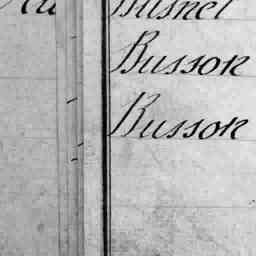 Busnel
Busson
Busson